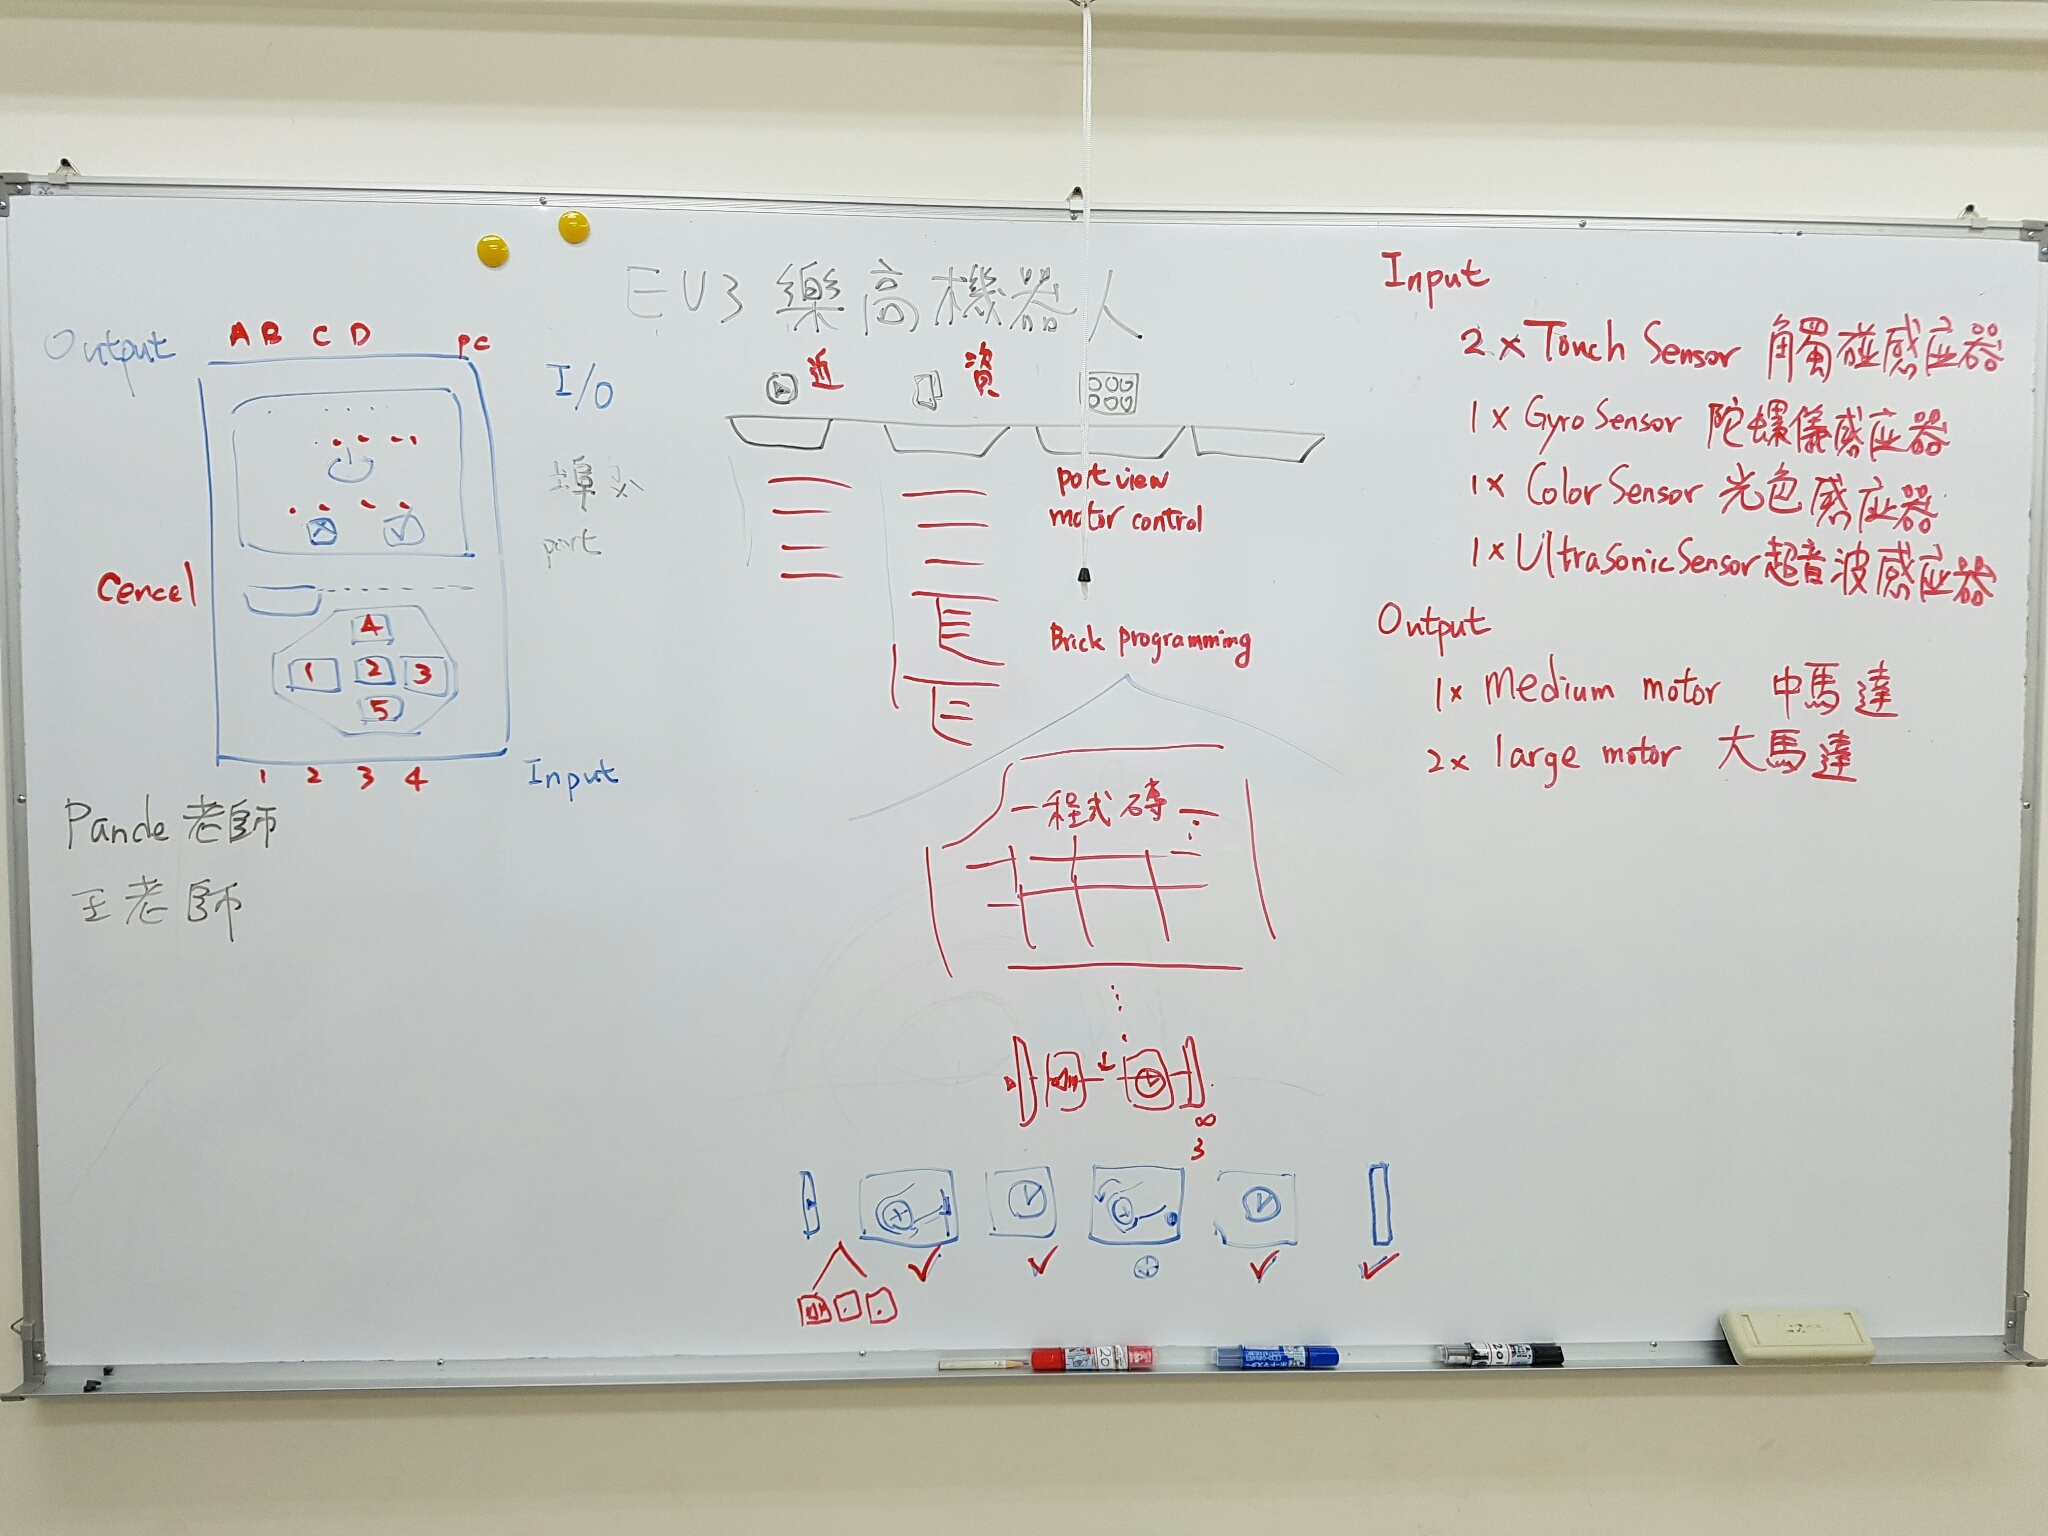 EV3 樂高機器人
Output
A B C D
PC
I/O
埠
port
Cencel
4
1 2 3
5
1 2 3 4
Input
Pande 老師
王老師
近
資
port view
motor control
Brick programming
程式磚
∞
3
Input
2 x Touch Sensor 觸碰感应器
1 x Gyro Sensor 陀螺儀感应器
1 x Color Sensor 光色感应器
1 x Ultrasonic Sensor 超音波感应器
Output
1 x Medium motor 中馬達
2 x large motor 大馬達